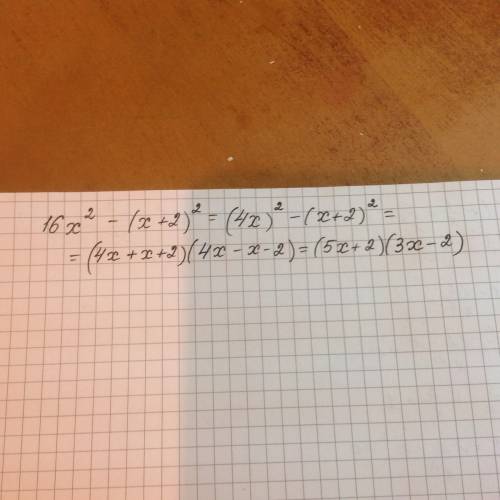 16x² - (x+2)² = (4x)² - (x+2)² =
= (4x+x+2)(4x-x-2) = (5x+2)(3x-2)